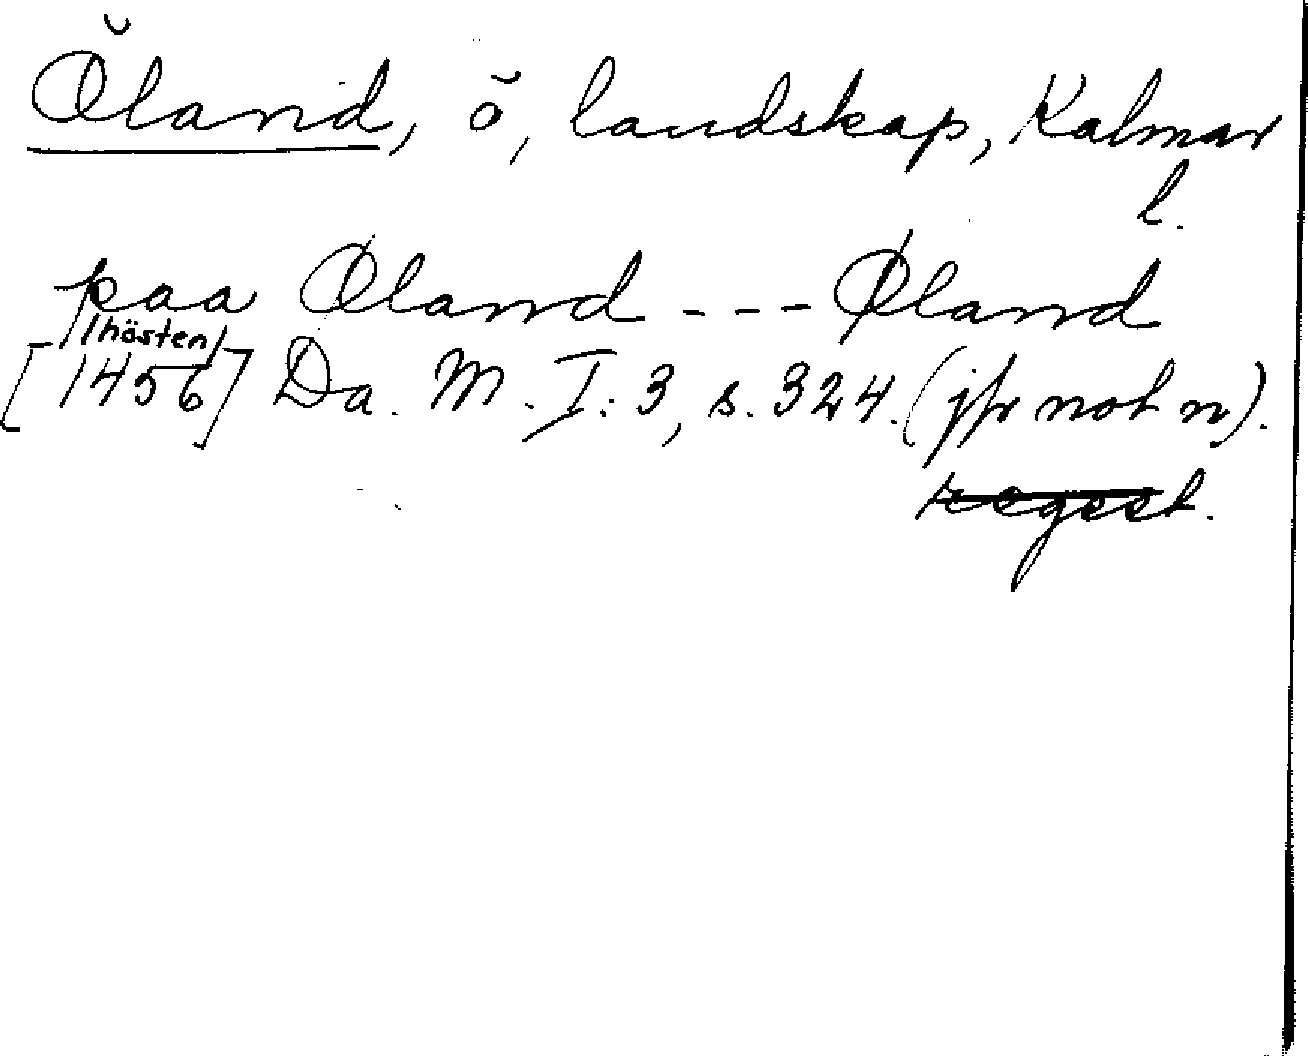 Öland, ö, landskap, Kalmar
l.
paa Øland --- Øland
/hösten/
[1456] Da. M. I: 3, s. 324. (jfr not n).
regest.